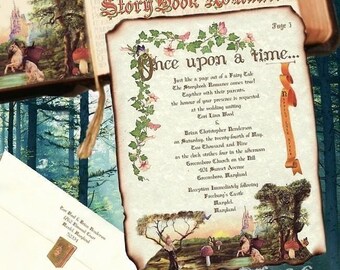 StoryBook Romance
Page 3
Once upon a time...
Just like a page out of a Fairy Tale
The Storybook Romance comes true!
Together with their parents
the honour of your presence is requested
at the wedding uniting
Lori Linn Wood
&
Brian Christopher Henderson
on Saturday, the twenty-fourth of May,
Two Thousand and Nine
at the clock strikes four in the afternoon
Greensboro Church on the Hill
Sunset Avenue
Greensboro, Maryland
Reception Immediately following
Castle
Marydel,
Maryland
Maryland